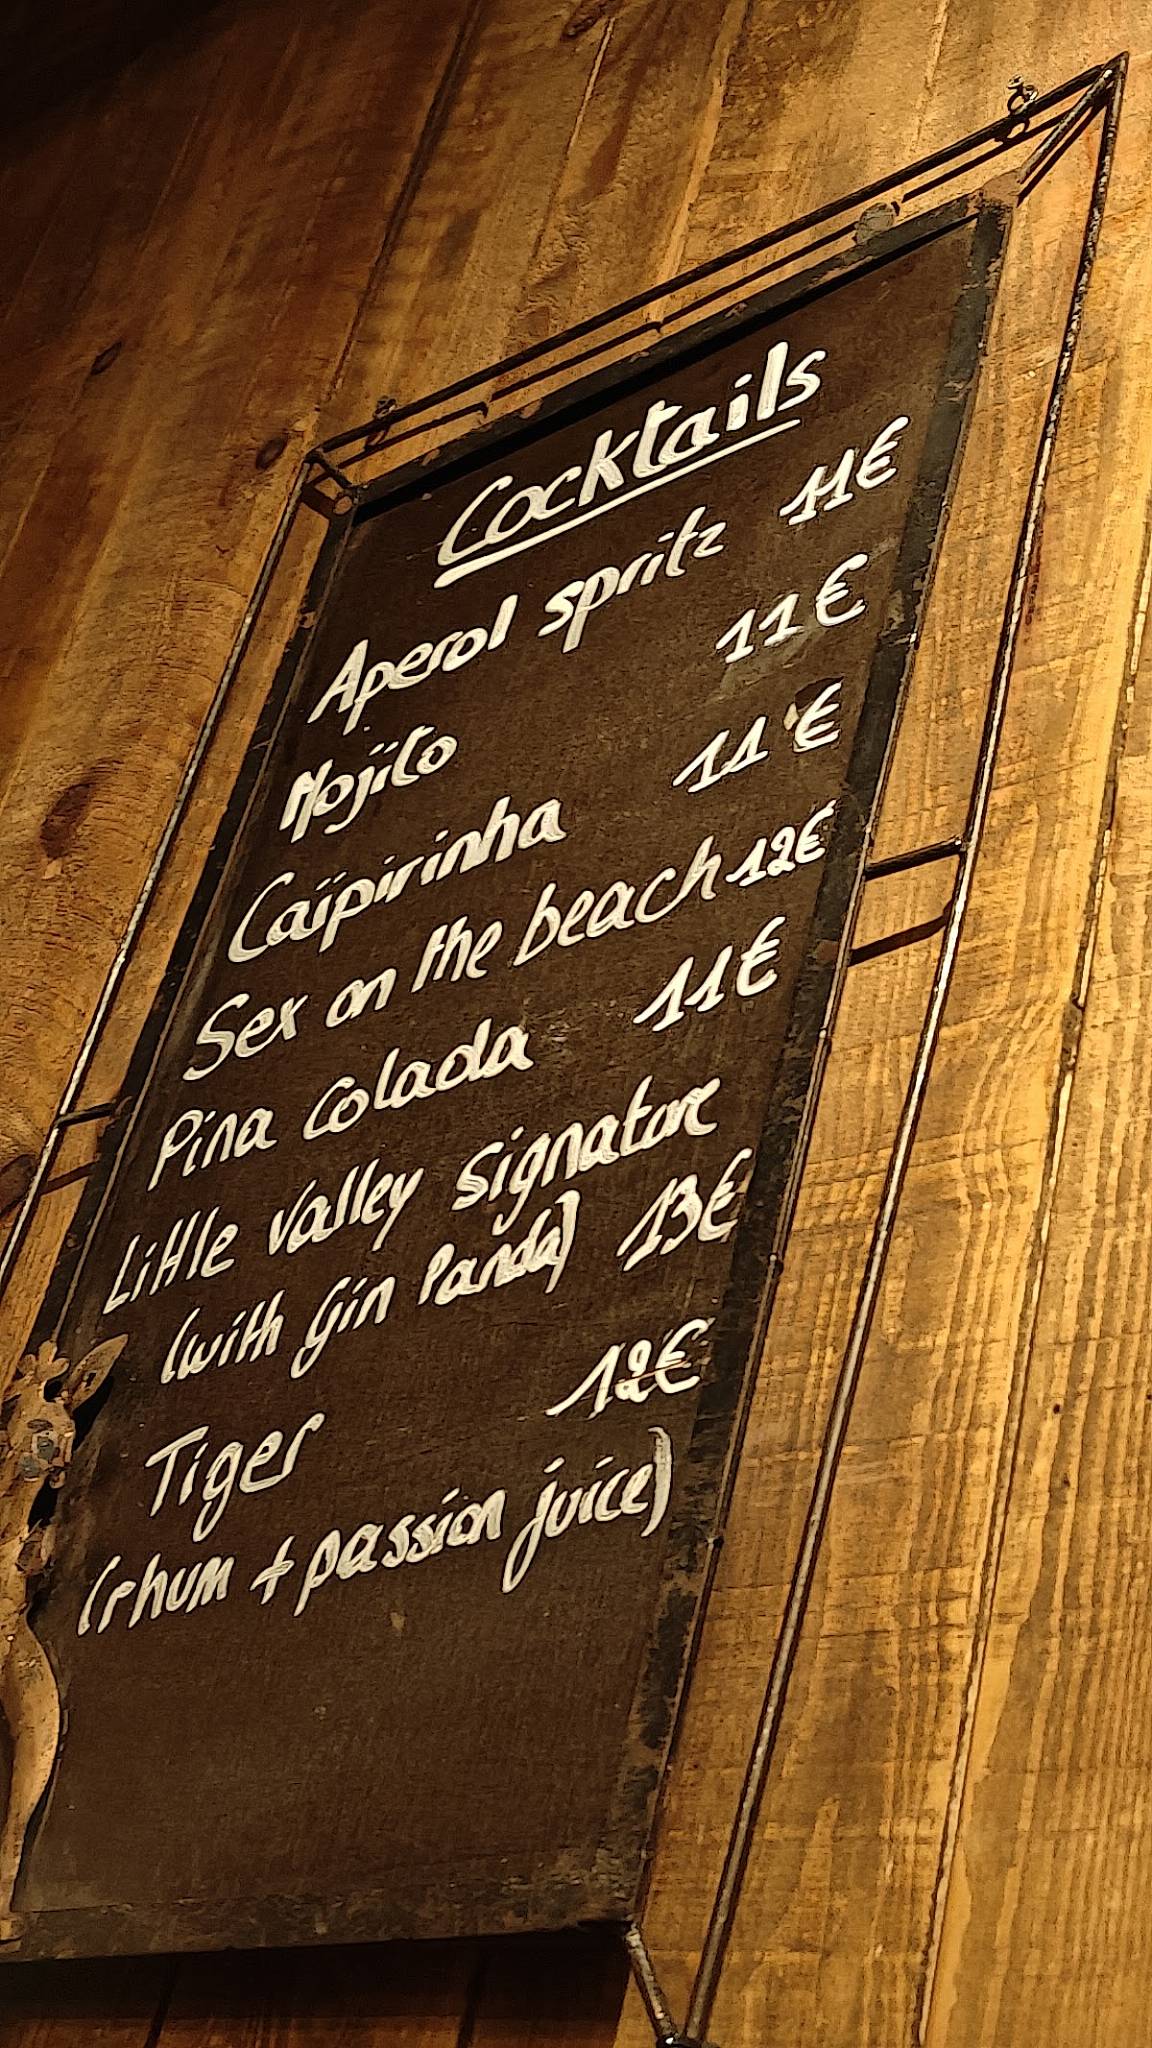 Cocktails
Aperol spritz 11€
Mojito 11€
Caïpirinha 11€
Sex on the beach 12€
Pina colada 11€
Little Valley signature
(with Gin Panda) 13€
Tiger 12€
(rhum + passion juice)